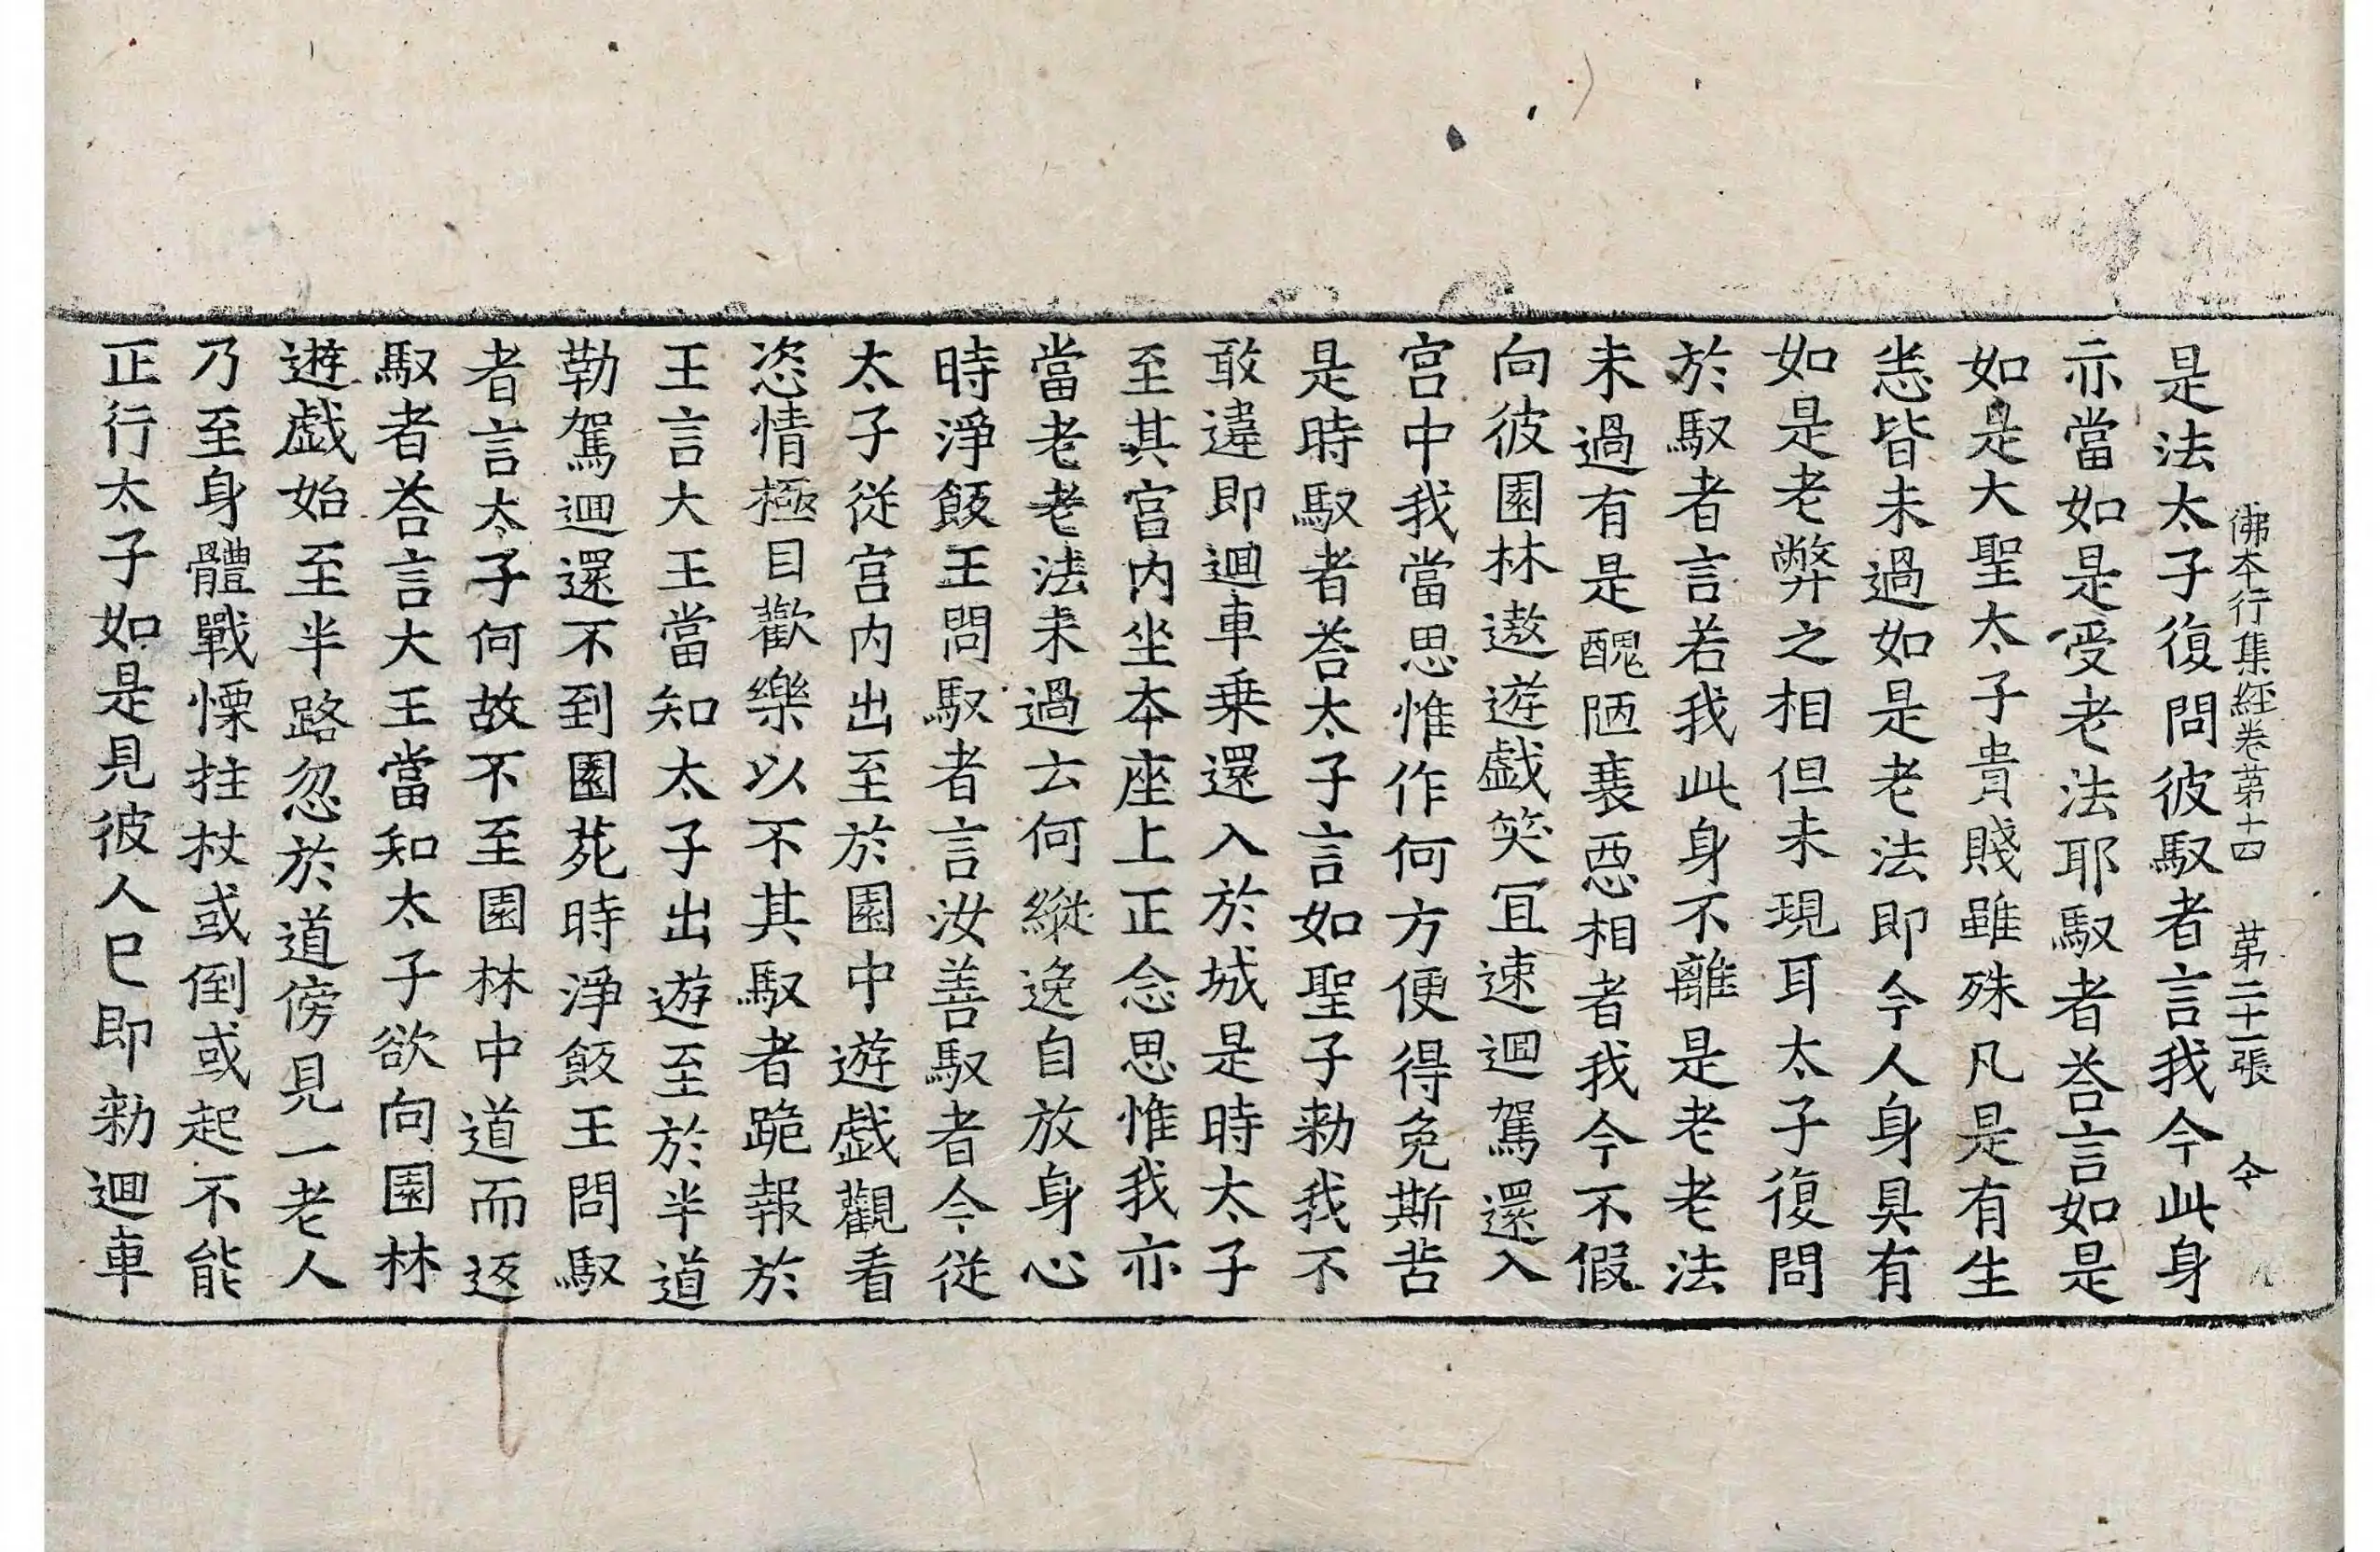 佛本行集経卷苐十四 苐二十一張 令
是法太子復問彼馭者言我今此身
亦當如是受老法耶馭者荅言如是
如是大聖太子貴賤雖殊凡是有生
悉皆未過如是老法即今人身具有
如是老弊之相但未現耳太子復問
於馭者言若我此身不離是老老法
未過有是醜陋衰惡相者我今不假
向彼園林遨遊戯笑冝速迴駕還入
宫中我當思惟作何方便得免斯苦
是時馭者荅太子言如聖子勑我不
敢違即迴車乗還入於城是時太子
至其宫内坐本座上正念思惟我亦
當老老法未過云何縱逸自放身心
時淨飯王問馭者言汝善馭者今従
太子従宫内出至於園中遊戯觀看
恣情極目歡樂以不其馭者跪報於
王言大王當知太子出遊至於半道
勒駕迴還不到園苑時淨飯王問馭
者言太子何故不至園林中道而返
馭者荅言大王當知太子欲向園林
遊戯始至半路忽於道傍見一老人
乃至身體戰慄拄杖或倒或起不能
正行太子如是見彼人巳即勑迴車